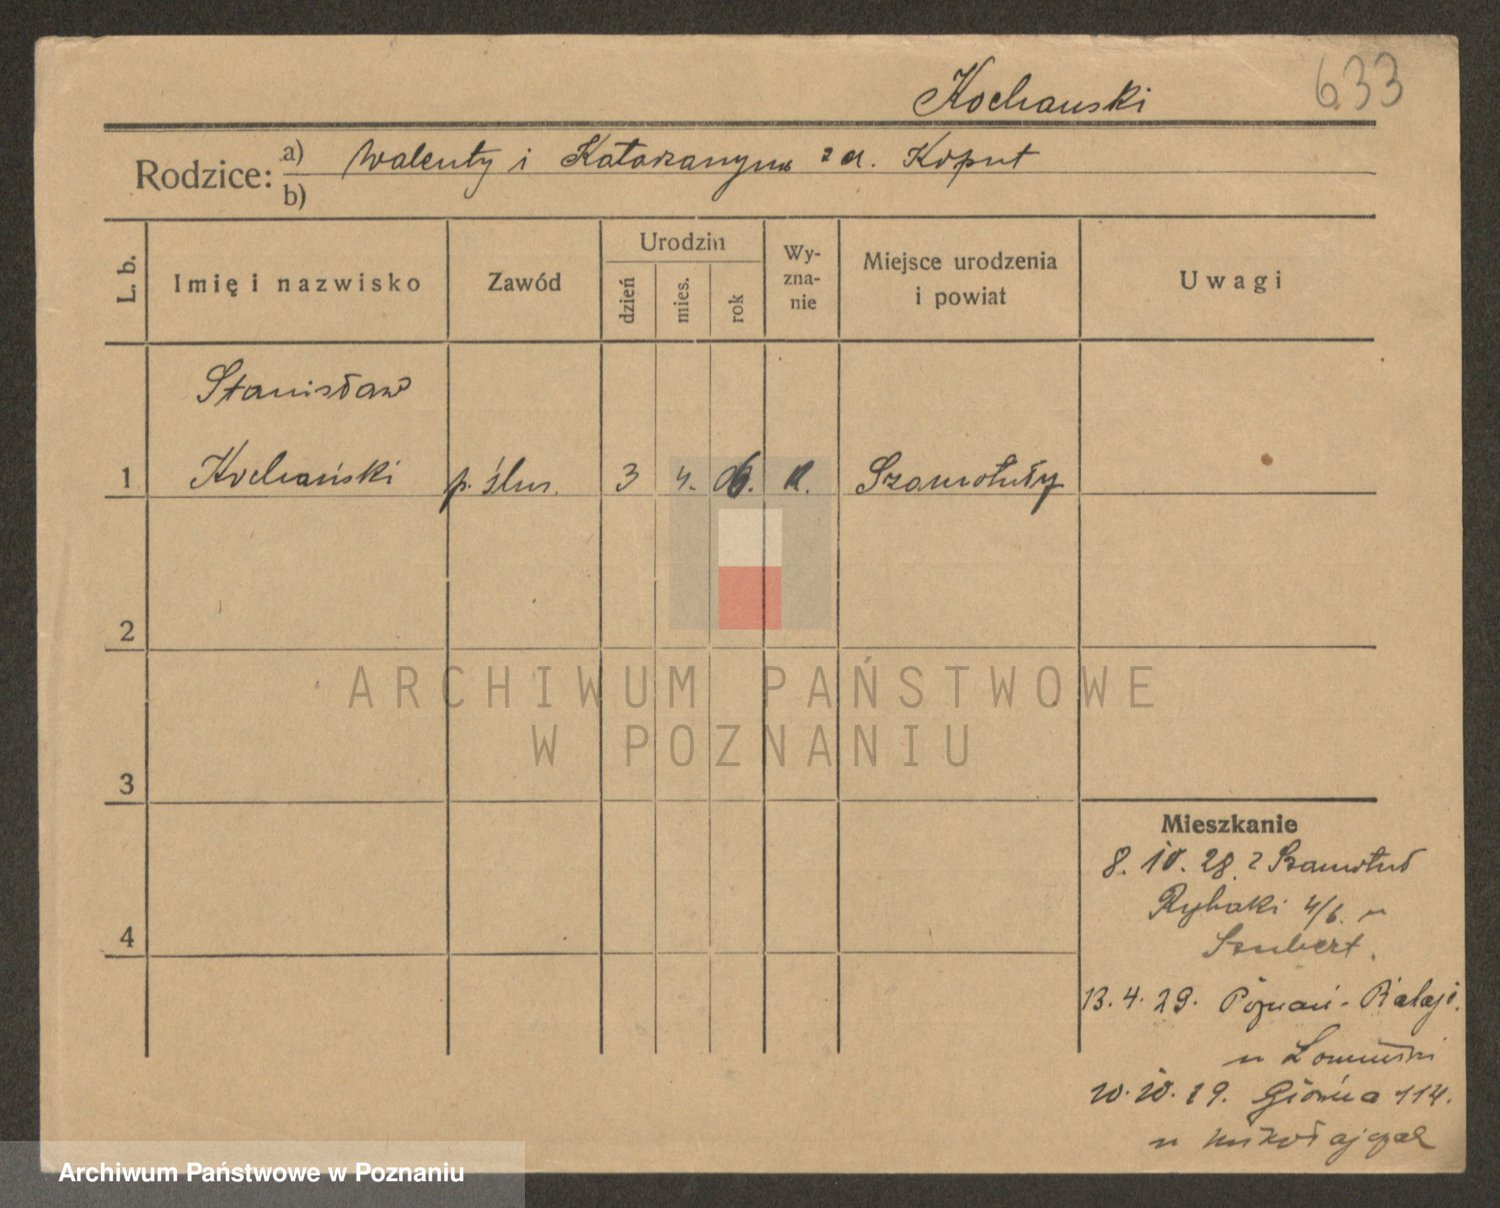 Kochanski
633
Rodzice: a) Walenty i Katarzanyna z d. Koput
b)
L. b.
Imię i nazwisko
Zawód
Urodzin
dzień
mies.
rok
Wy-
zna-
nie
Miejsce urodzenia
i powiat
Uwagi
Stanisław
1 Kochański p. ślus. 3 4. 06. k. Szamotuły
2
ARCHIWUM PAŃSTWOWE
W POZNANIU
3
Mieszkanie
8. 10. 28. z Szamotuł
Rybaki 4/6. u
Szubert.
4
13. 4. 29. Poznań - Rataje.
u
20. 10. 29. Główna 114.
u Mikołajczak
Archiwum Państwowe w Poznaniu